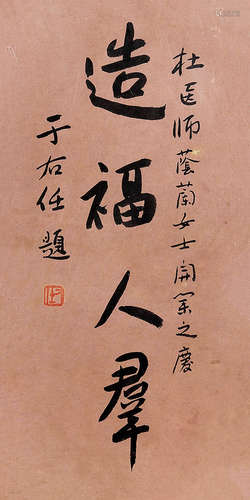 杜医师蔭蘭女士開業之慶
造福人羣
于右任題